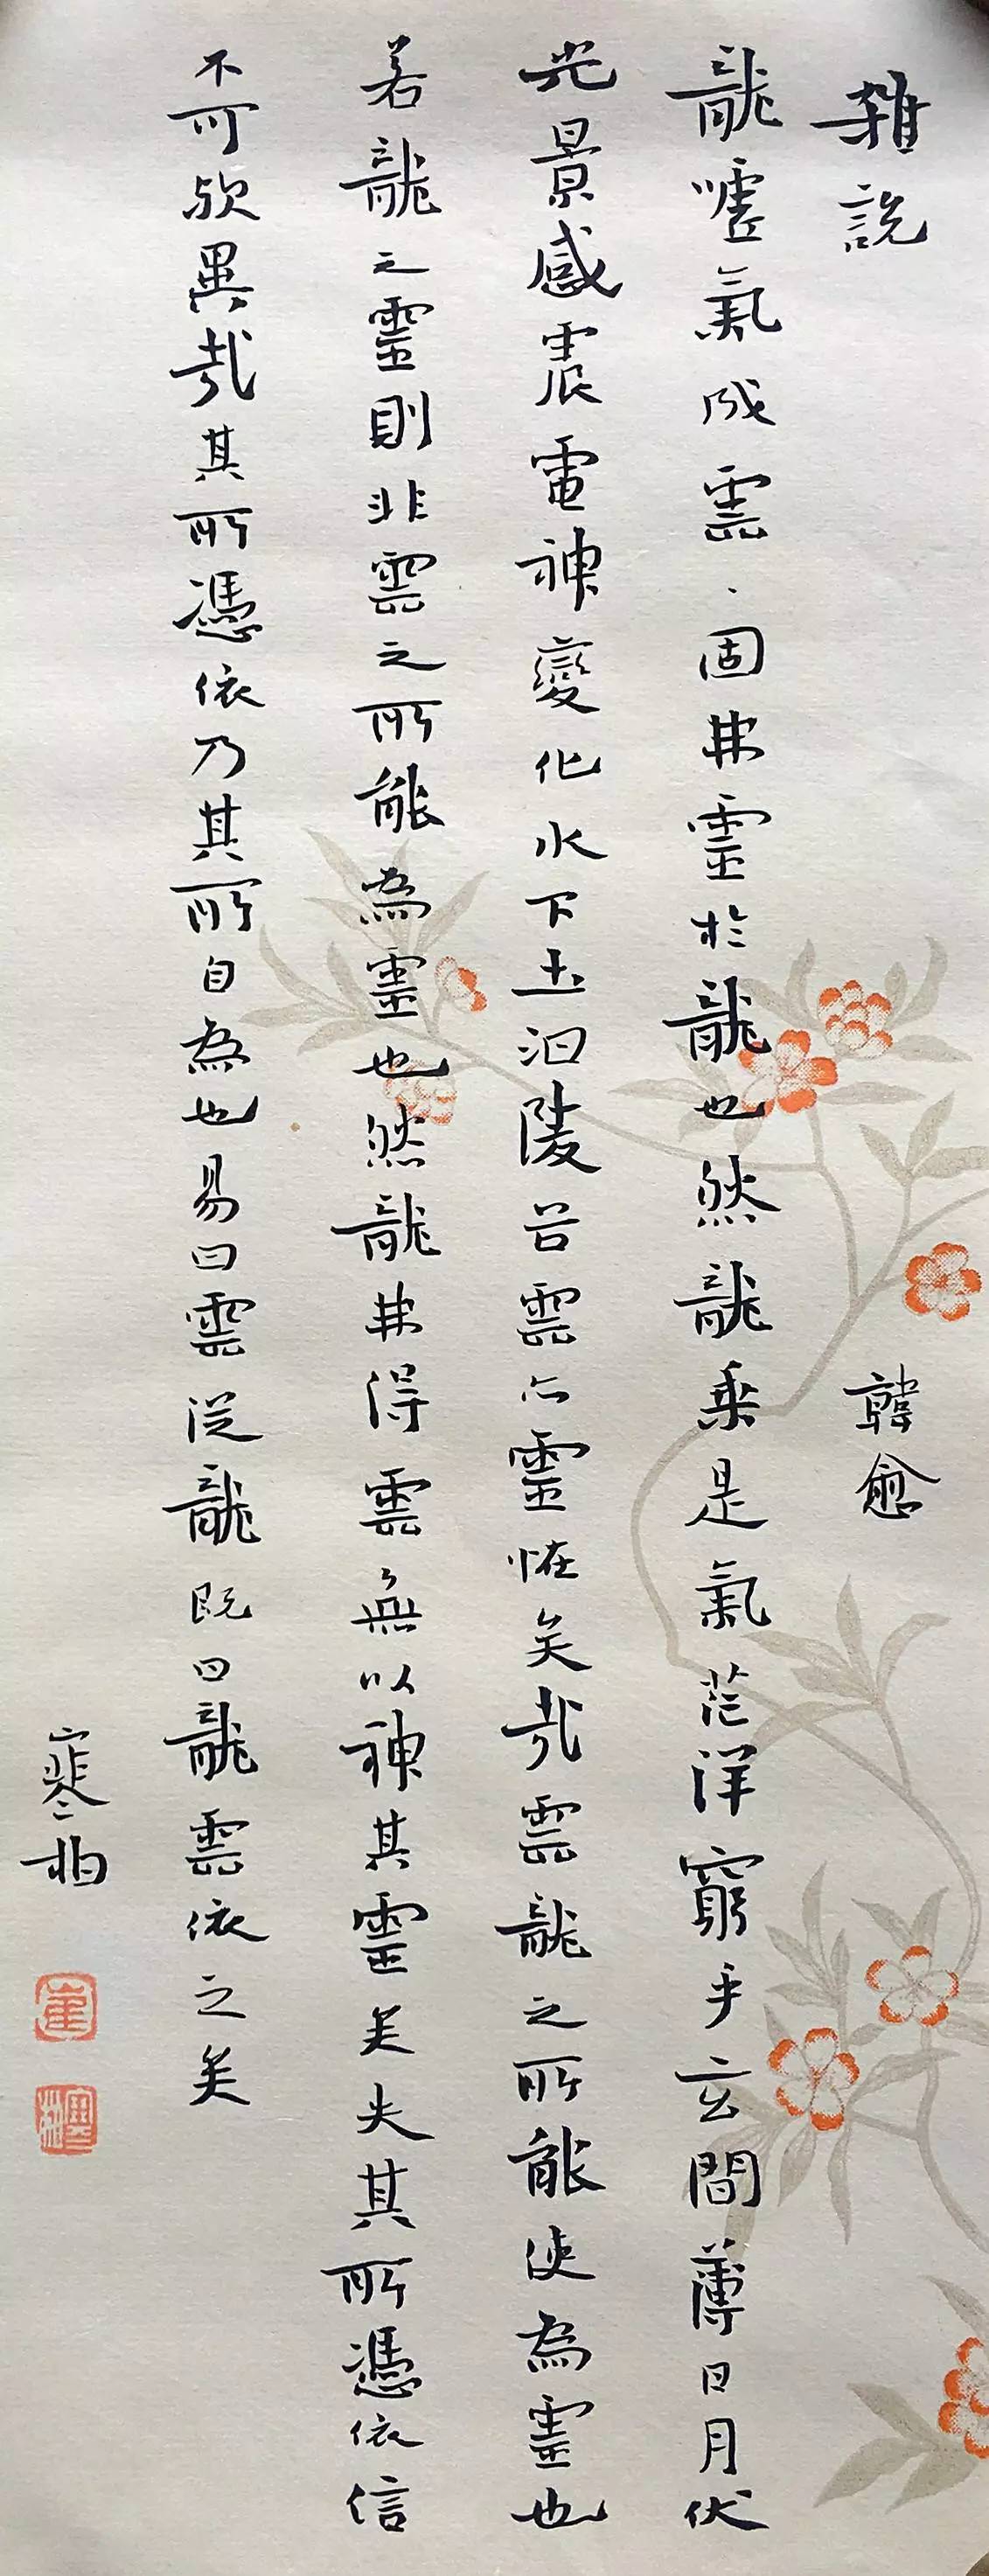 雜說 韓愈
龍噓氣成雲、固弗靈於龍也然龍乘是氣茫洋窮乎玄間薄日月伏
光景感震電神變化水下土汩陵谷雲亦靈怪矣哉雲龍之所能使為靈也
若龍之靈則非雲之所能為靈也然龍弗得雲無以神其靈矣失其所憑依信
不可歟異哉其所憑依乃其所自為也易曰雲從龍既曰龍雲依之矣
寒柏
崔